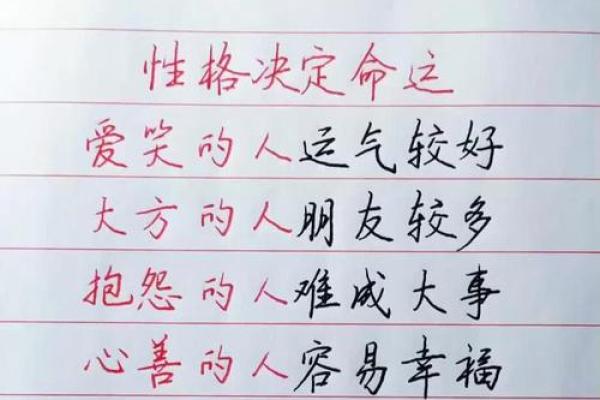 性格决定命运
爱笑的人运气较好
大方的人朋友较多
抱怨的人难成大事
心善的人容易幸福